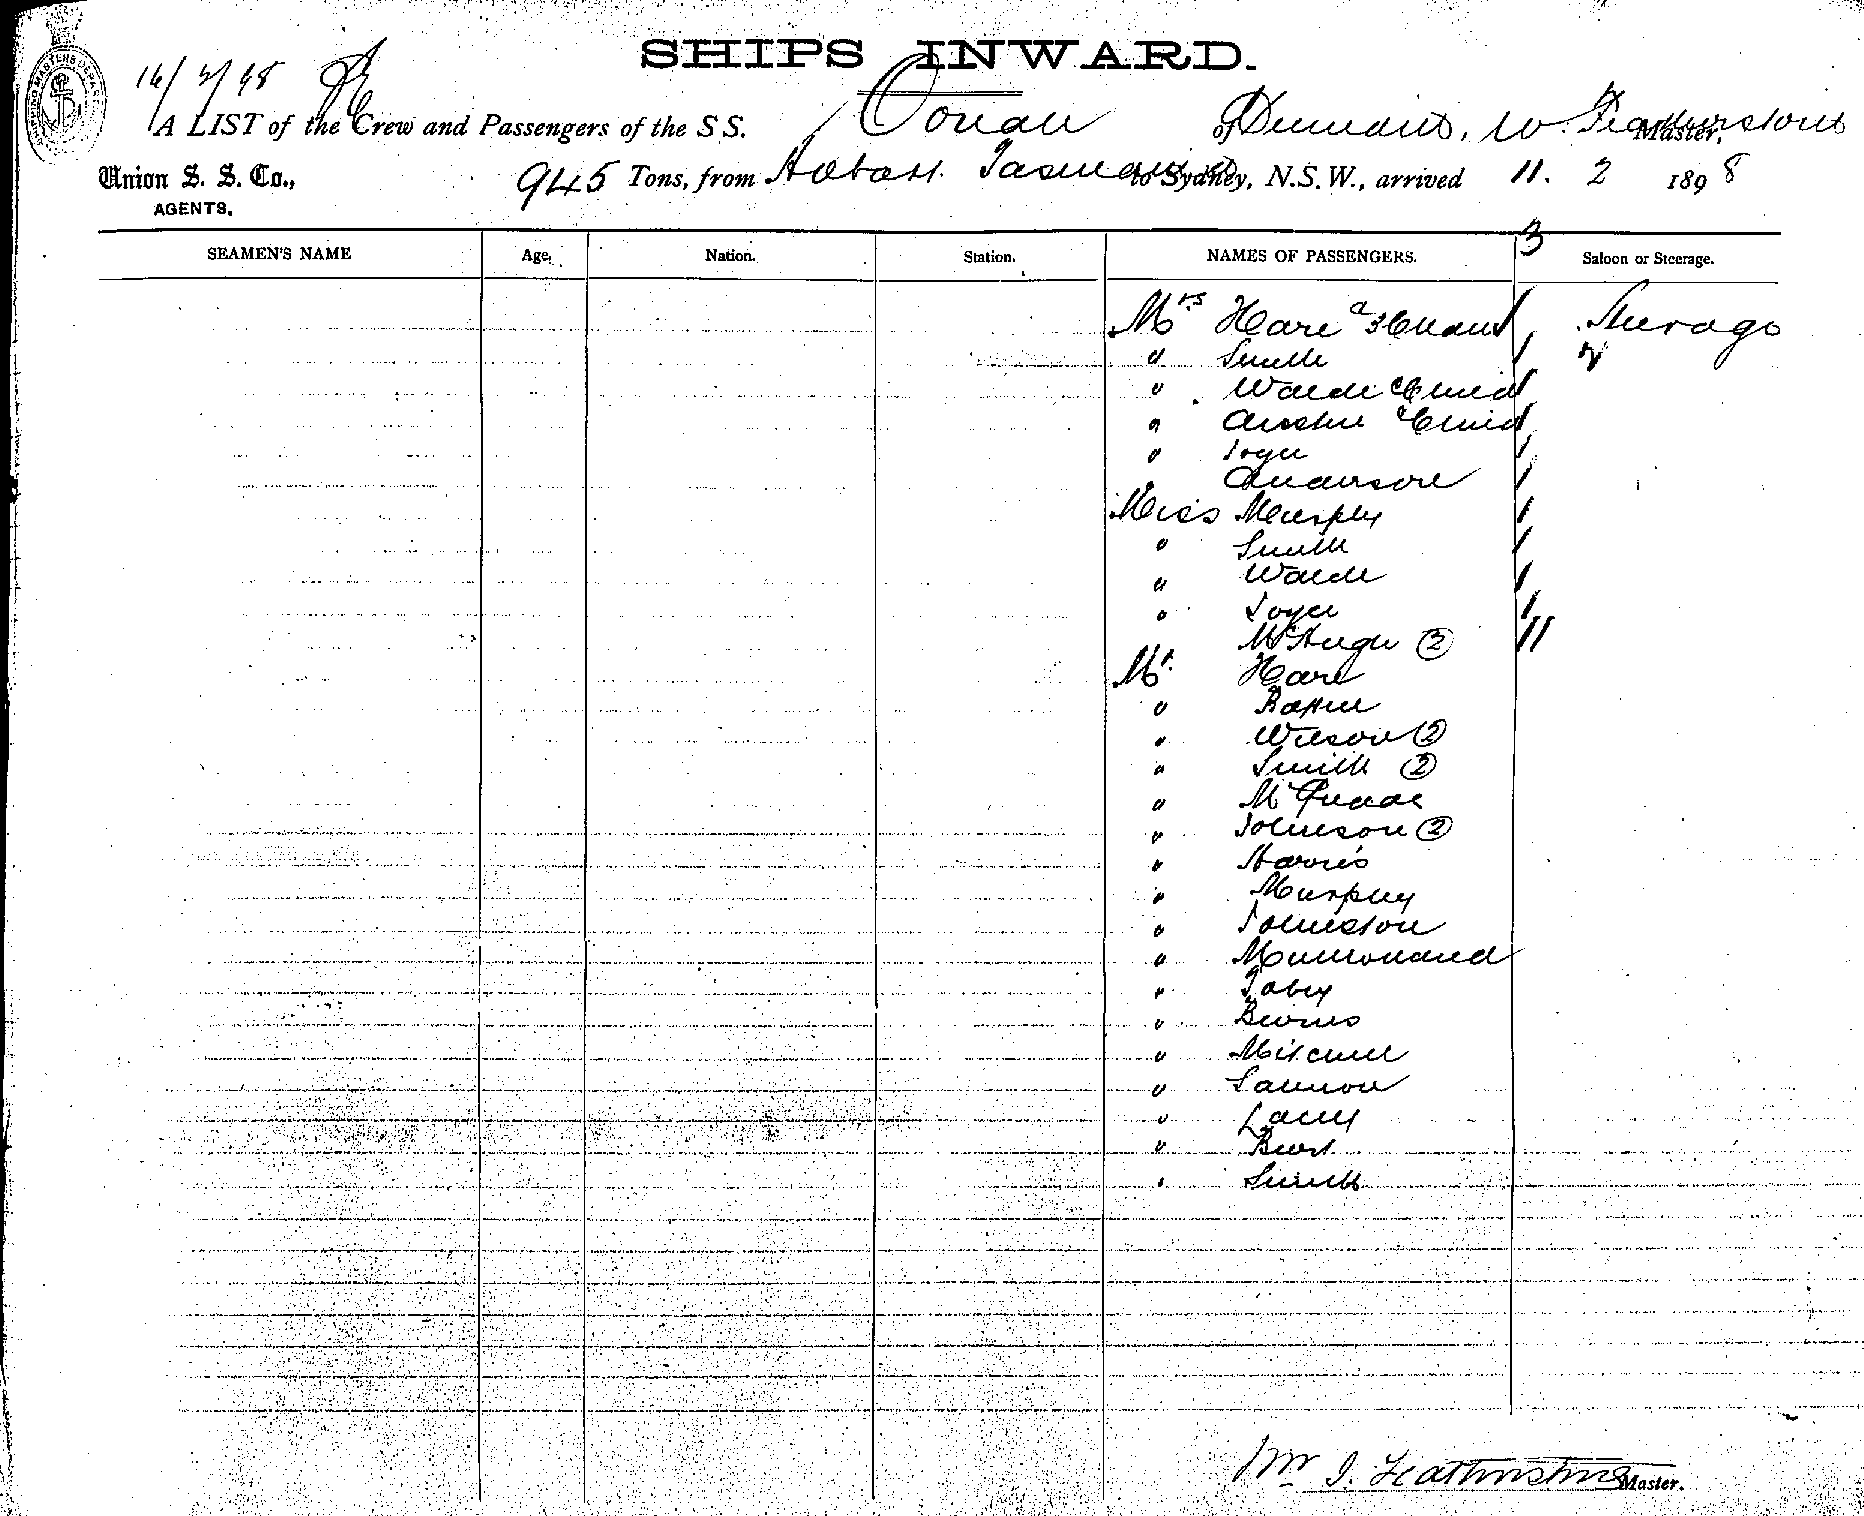 SHIPS INWARD.
16/2/98
A LIST of the Crew and Passengers of the S S. Oonah of Dunedin, W. Featherstone Master,
Union S. S. Co.,
AGENTS.
945 Tons, from Hobart Tasmania to Sydney, N.S.W., arrived 11. 2 1898
3
SEAMEN'S NAME Age, Nation. Station. NAMES OF PASSENGERS. Saloon or Steerage.
Mrs Hare & 3 Steerage
" Smith
" Walde & Child
" & Child
" Joyce
" Anderson
Miss Murphy
" Smith
" Walde
" Joyce
McHugh 2
Mr Hare
"
" Wilson 2
" Smith 2
" McQuade
" Johnson 2
" Harris
" Murphy
" Johnston
"
" Tobey
"
" Mitchell
" Salmon
" Lacey
" Burt
" Smith
Wm J. Featherstone Master.